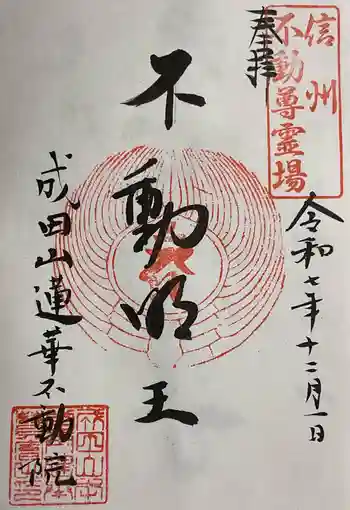 奉拝
信州
不動尊霊場
令和七年十二月一日
不動明王
成田山蓮華不動院